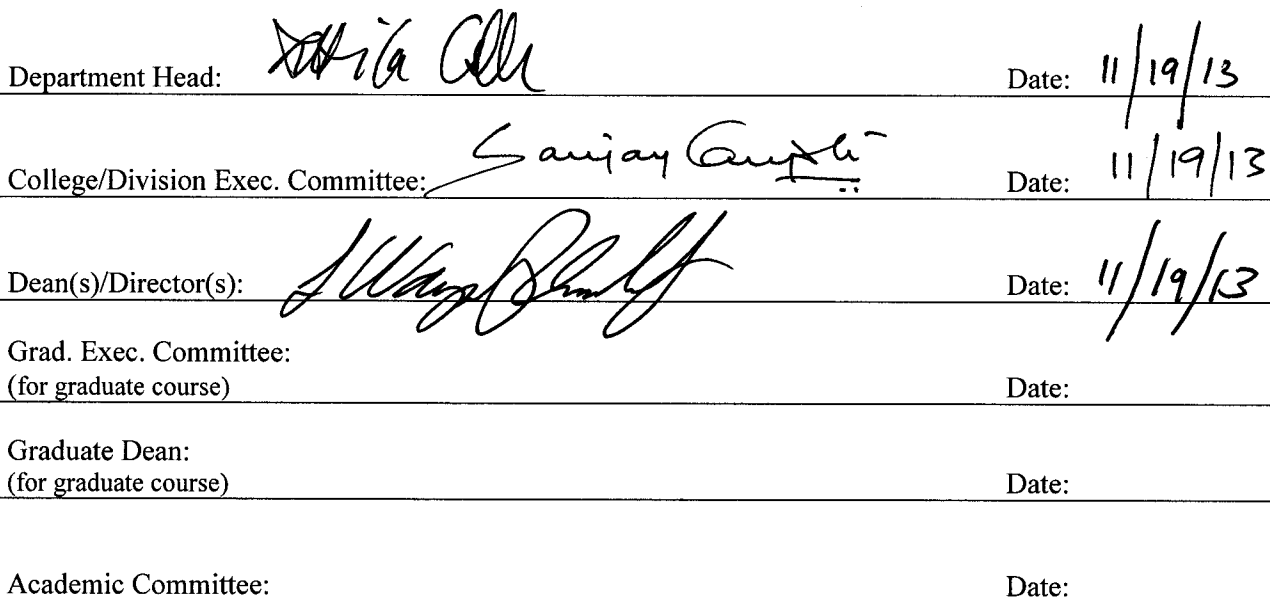 Department Head: Date: 11/19/13
College/Division Exec. Committee: Sanjay Date: 11/19/13
Dean(s)/Director(s): Date: 11/19/13
Grad. Exec. Committee:
(for graduate course) Date:
Graduate Dean:
(for graduate course) Date:
Academic Committee: Date: